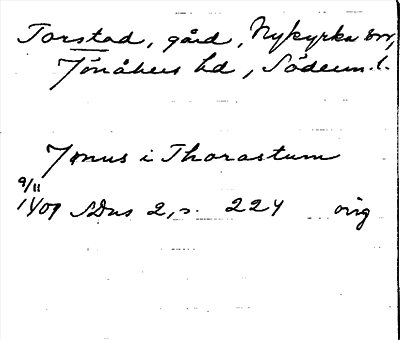 Torstad, gård, Nykyrka sn,
Jönåkers hd, Söderm. l.
Jonus i Thorastum
9/11
1409 SDns 2, s. 224 orig